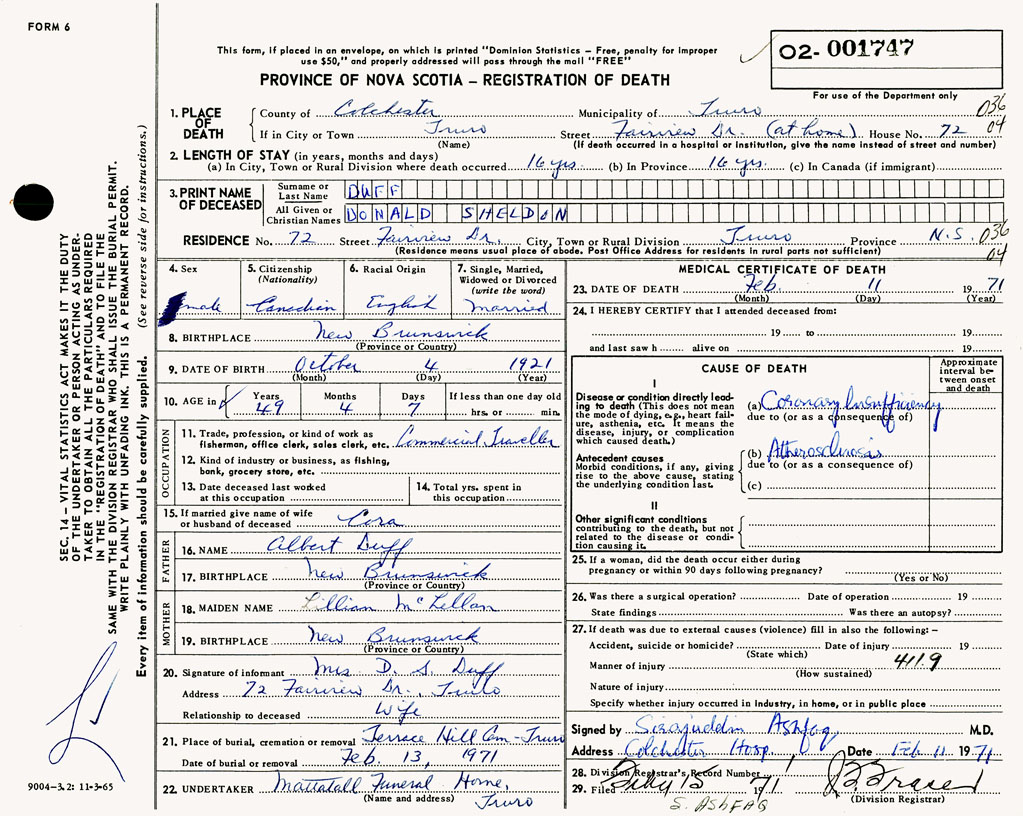 FORM 6
This form, if placed in an envelope, on which is printed "Dominion Statistics – Free, penalty for improper
use $50," and properly addressed will pass through the mail "FREE"
PROVINCE OF NOVA SCOTIA – REGISTRATION OF DEATH
02- 001747
For use of the Department only
036
04
1. PLACE OF DEATH
County of Colchester Municipality of Truro
If in City or Town Truro Street Fairview Dr. (at home) House No. 72
(Name) (If death occurred in a hospital or institution, give the name instead of street and number)
2. LENGTH OF STAY (in years, months and days)
(a) In City, Town or Rural Division where death occurred 16 yrs. (b) In Province 16 yrs. (c) In Canada (if immigrant)
3. PRINT NAME OF DECEASED
Surname or Last Name DUFF
All Given or Christian Names DONALD SHELDON
RESIDENCE No. 72 Street Fairview Dr. City, Town or Rural Division Truro Province N.S. 036
04
(Residence means usual place of abode. Post Office Address for residents in rural parts not sufficient)
4. Sex
male
5. Citizenship
(Nationality)
Canadian
6. Racial Origin
English
7. Single, Married,
Widowed or Divorced
(write the word)
Married
8. BIRTHPLACE New Brunswick
(Province or Country)
9. DATE OF BIRTH October 4 1921
(Month) (Day) (Year)
10. AGE in Years Months Days If less than one day old
49 4 7 hrs. or min.
OCCUPATION
11. Trade, profession, or kind of work as
fisherman, office clerk, sales clerk, etc. Commercial Traveller
12. Kind of industry or business, as fishing,
bank, grocery store, etc.
13. Date deceased last worked
at this occupation
14. Total yrs. spent in
this occupation
15. If married give name of wife
or husband of deceased Cora
FATHER
16. NAME Albert Duff
17. BIRTHPLACE New Brunswick
(Province or Country)
MOTHER
18. MAIDEN NAME Lillian McLellan
19. BIRTHPLACE New Brunswick
(Province or Country)
20. Signature of informant Mrs D. S. Duff
Address 72 Fairview Dr., Truro
Relationship to deceased Wife
21. Place of burial, cremation or removal Terrace Hill Cem-Truro
Date of burial or removal Feb. 13, 1971
22. UNDERTAKER Mattatall Funeral Home,
(Name and address) Truro
MEDICAL CERTIFICATE OF DEATH
23. DATE OF DEATH Feb. 11 1971
(Month) (Day) (Year)
24. I HEREBY CERTIFY that I attended deceased from:
19 to 19
and last saw h alive on 19
CAUSE OF DEATH
Approximate
interval be-
tween onset
and death
I
Disease or condition directly lead-
ing to death (This does not mean
the mode of dying, e.g., heart fail-
ure, asthenia, etc. It means the
disease, injury, or complication
which caused death.)
(a) Coronary Insufficiency
due to (or as a consequence of)
Antecedent causes
Morbid conditions, if any, giving
rise to the above cause, stating
the underlying condition last.
(b) Atherosclerosis
due to (or as a consequence of)
(c)
II
Other significant conditions
contributing to the death, but not
related to the disease or condi-
tion causing it.
25. If a woman, did the death occur either during
pregnancy or within 90 days following pregnancy?
(Yes or No)
26. Was there a surgical operation? Date of operation 19
State findings Was there an autopsy?
27. If death was due to external causes (violence) fill in also the following: –
Accident, suicide or homicide? Date of injury 19
(State which)
Manner of injury 411.9
(How sustained)
Nature of injury
Specify whether injury occurred in industry, in home, or in public place
Signed by Sirajuddin Ashfaq M.D.
Address Colchester Hosp. Date Feb 11 1971
28. Division Registrar's Record Number
29. Filed Feby 15 1971
(Division Registrar)
S. ASHFAQ
SEC. 14 – VITAL STATISTICS ACT MAKES IT THE DUTY
OF THE UNDERTAKER OR PERSON ACTING AS UNDER-
TAKER TO OBTAIN ALL THE PARTICULARS REQUIRED
IN THE "REGISTRATION OF DEATH" AND TO FILE THE
SAME WITH THE DIVISION REGISTRAR WHO SHALL ISSUE THE BURIAL PERMIT.
WRITE PLAINLY WITH UNFADING INK. THIS IS A PERMANENT RECORD.
Every item of information should be carefully supplied. (See reverse side for instructions.)
9004-3.2: 11-3-65